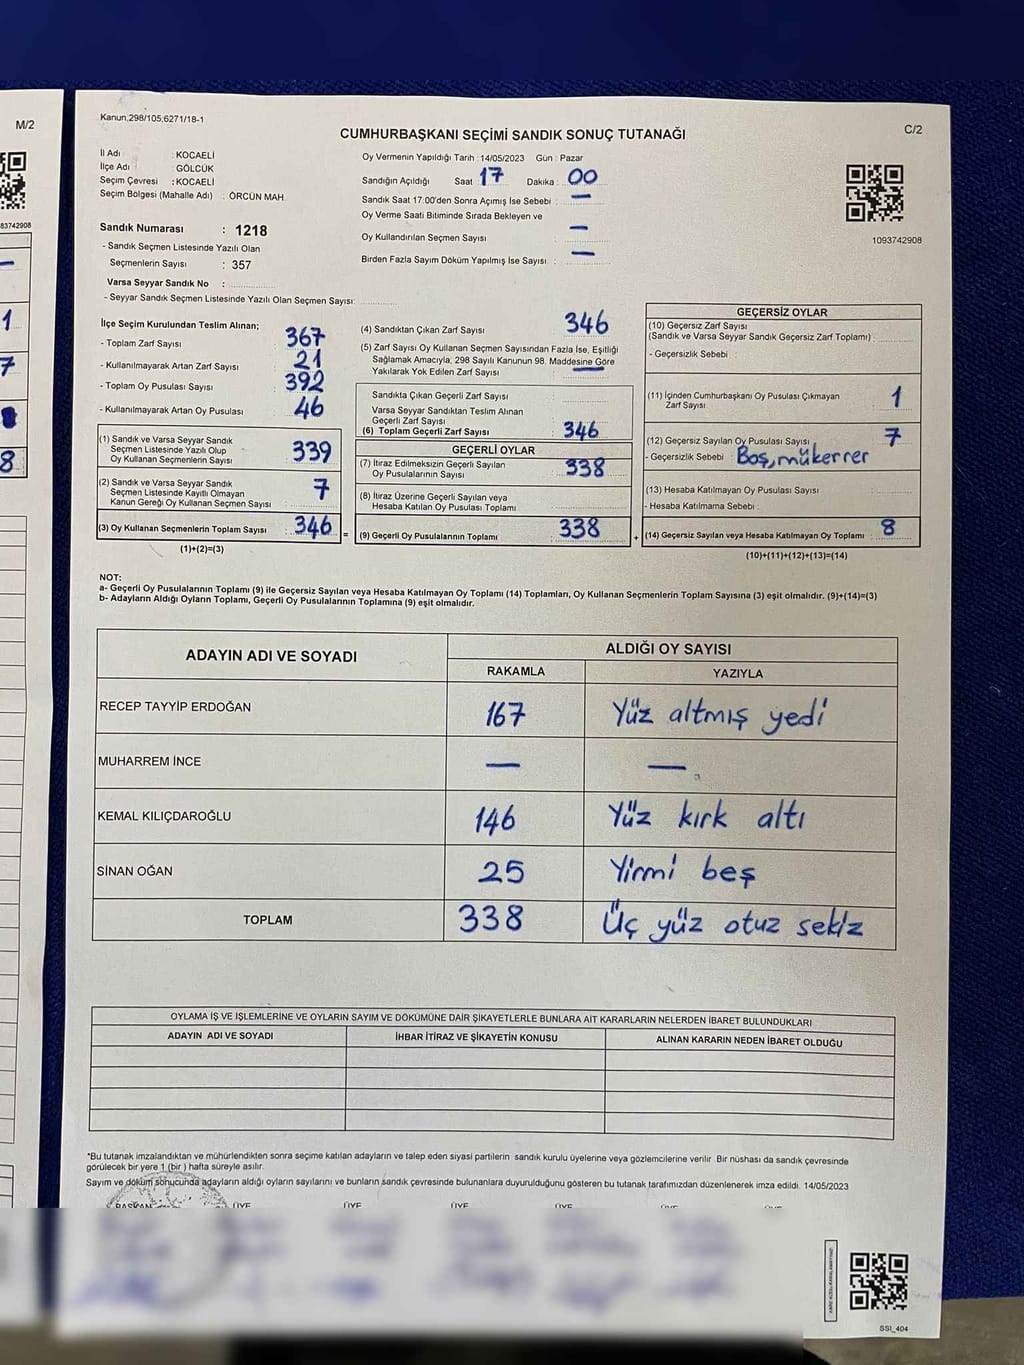 M/2
83742908
1
7
8
Kanun,298/105;6271/18-1
C/2
CUMHURBAŞKANI SEÇİMİ SANDIK SONUÇ TUTANAĞI
İl Adı : KOCAELİ
İlçe Adı : GÖLCÜK
Seçim Çevresi : KOCAELİ
Seçim Bölgesi (Mahalle Adı) : ÖRCÜN MAH
Sandık Numarası : 1218
- Sandık Seçmen Listesinde Yazılı Olan
Seçmenlerin Sayısı : 357
Varsa Seyyar Sandık No :
- Seyyar Sandık Seçmen Listesinde Yazılı Olan Seçmen Sayısı:
Oy Vermenin Yapıldığı Tarih : 14/05/2023 Gün : Pazar
Sandığın Açıldığı Saat 17 Dakika : 00
Sandık Saat 17:00'den Sonra Açımış İse Sebebi : —
Oy Verme Saati Bitiminde Sırada Bekleyen ve
Oy Kullandırılan Seçmen Sayısı : —
Birden Fazla Sayım Döküm Yapılmış İse Sayısı : —
1093742908
İlçe Seçim Kurulundan Teslim Alınan;
- Toplam Zarf Sayısı : 367
- Kullanılmayarak Artan Zarf Sayısı : 21
- Toplam Oy Pusulası Sayısı : 392
- Kullanılmayarak Artan Oy Pusulası : 46
(1) Sandık ve Varsa Seyyar Sandık
Seçmen Listesinde Yazılı Olup
Oy Kullanan Seçmenlerin Sayısı : 339
(2) Sandık ve Varsa Seyyar Sandık
Seçmen Listesinde Kayıtlı Olmayan
Kanun Gereği Oy Kullanan Seçmen Sayısı : 7
(3) Oy Kullanan Seçmenlerin Toplam Sayısı : 346
(1)+(2)=(3)
=
(4) Sandıktan Çıkan Zarf Sayısı : 346
(5) Zarf Sayısı Oy Kullanan Seçmen Sayısından Fazla İse, Eşitliği
Sağlamak Amacıyla; 298 Sayılı Kanunun 98. Maddesine Göre
Yakılarak Yok Edilen Zarf Sayısı : —
Sandıkta Çıkan Geçerli Zarf Sayısı :
Varsa Seyyar Sandıktan Teslim Alınan
Geçerli Zarf Sayısı :
(6) Toplam Geçerli Zarf Sayısı : 346
GEÇERLİ OYLAR
(7) İtiraz Edilmeksizin Geçerli Sayılan
Oy Pusulalarının Sayısı : 338
(8) İtiraz Üzerine Geçerli Sayılan veya
Hesaba Katılan Oy Pusulası Toplamı :
(9) Geçerli Oy Pusulalarının Toplamı : 338
+
GEÇERSİZ OYLAR
(10) Geçersiz Zarf Sayısı
(Sandık ve Varsa Seyyar Sandık Geçersiz Zarf Toplamı) :
- Geçersizlik Sebebi :
(11) İçinden Cumhurbaşkanı Oy Pusulası Çıkmayan
Zarf Sayısı : 1
(12) Geçersiz Sayılan Oy Pusulası Sayısı : 7
- Geçersizlik Sebebi : Boş, mükerrer
(13) Hesaba Katılmayan Oy Pusulası Sayısı :
- Hesaba Katılmama Sebebi :
(14) Geçersiz Sayılan veya Hesaba Katılmayan Oy Toplamı : 8
(10)+(11)+(12)+(13)=(14)
NOT:
a- Geçerli Oy Pusulalarının Toplamı (9) ile Geçersiz Sayılan veya Hesaba Katılmayan Oy Toplamı (14) Toplamları, Oy Kullanan Seçmenlerin Toplam Sayısına (3) eşit olmalıdır. (9)+(14)=(3)
b- Adayların Aldığı Oyların Toplamı, Geçerli Oy Pusulalarının Toplamına (9) eşit olmalıdır.
ADAYIN ADI VE SOYADI ALDIĞI OY SAYISI
RAKAMLA YAZIYLA
RECEP TAYYİP ERDOĞAN 167 Yüz altmış yedi
MUHARREM İNCE — —
KEMAL KILIÇDAROĞLU 146 Yüz kırk altı
SİNAN OĞAN 25 Yirmi beş
TOPLAM 338 Üç yüz otuz sekiz
OYLAMA İŞ VE İŞLEMLERİNE VE OYLARIN SAYIM VE DÖKÜMÜNE DAİR ŞİKAYETLERLE BUNLARA AİT KARARLARIN NELERDEN İBARET BULUNDUKLARI
ADAYIN ADI VE SOYADI İHBAR İTİRAZ VE ŞİKAYETİN KONUSU ALINAN KARARIN NEDEN İBARET OLDUĞU
*Bu tutanak imzalandıktan ve mühürlendikten sonra seçime katılan adayların ve talep eden siyasi partilerin sandık kurulu üyelerine veya gözlemcilerine verilir. Bir nüshası da sandık çevresinde
görülecek bir yere 1 (bir) hafta süreyle asılır.
Sayım ve döküm sonucunda adayların aldığı oyların sayılarını ve bunların sandık çevresinde bulunanlara duyurulduğunu gösteren bu tutanak tarafımızdan düzenlenerek imza edildi. 14/05/2023
BAŞKAN ÜYE ÜYE ÜYE ÜYE ÜYE ÜYE
SSI_404